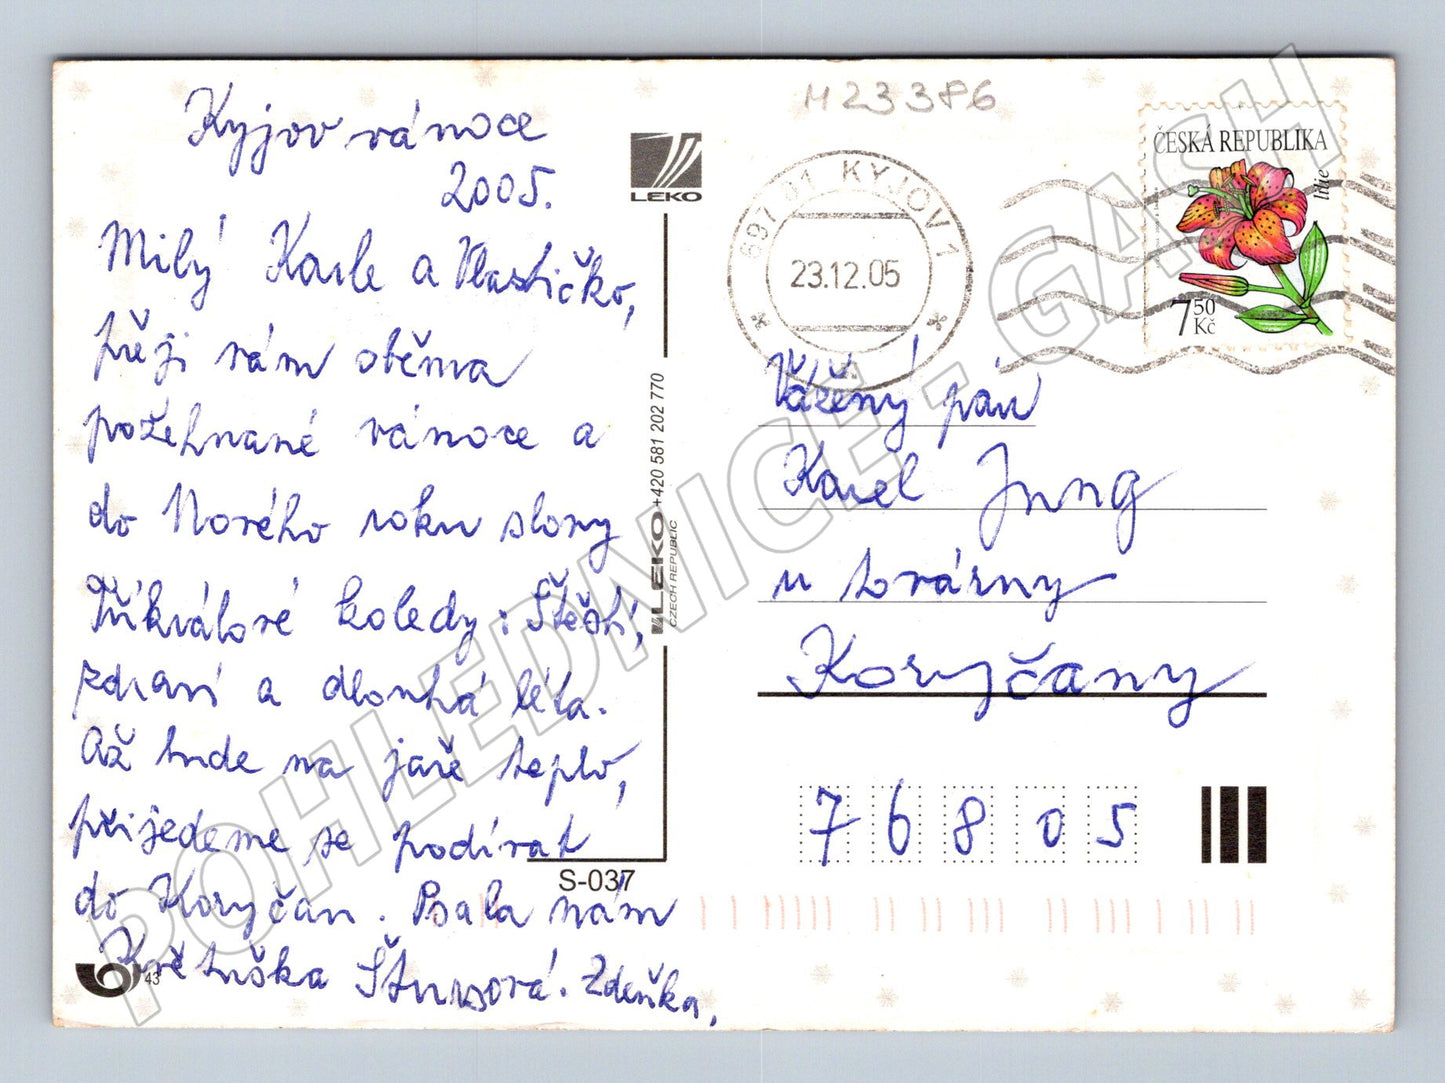 Kyjov vánoce
2005.
Milý Karle a Vlastičko,
přeji vám oběma
požehnané vánoce a
do Nového roku slovy
Tříkrálové koledy: Štěstí,
zdraví a dlouhá léta.
Až bude na jaře teplo,
přijedeme se podívat
do Koryčan. Psala nám
Květuška Zdeňka,
43
LEKO
LEKO +420 581 202 770
CZECH REPUBLIC
S-037
M23386
697 01 KYJOV 1
23.12.05
ČESKÁ REPUBLIKA
lilie
7 50 Kč
Vážený pán
Karel Jung
u továrny
Koryčany
76805
POHLEDNICE - GASH